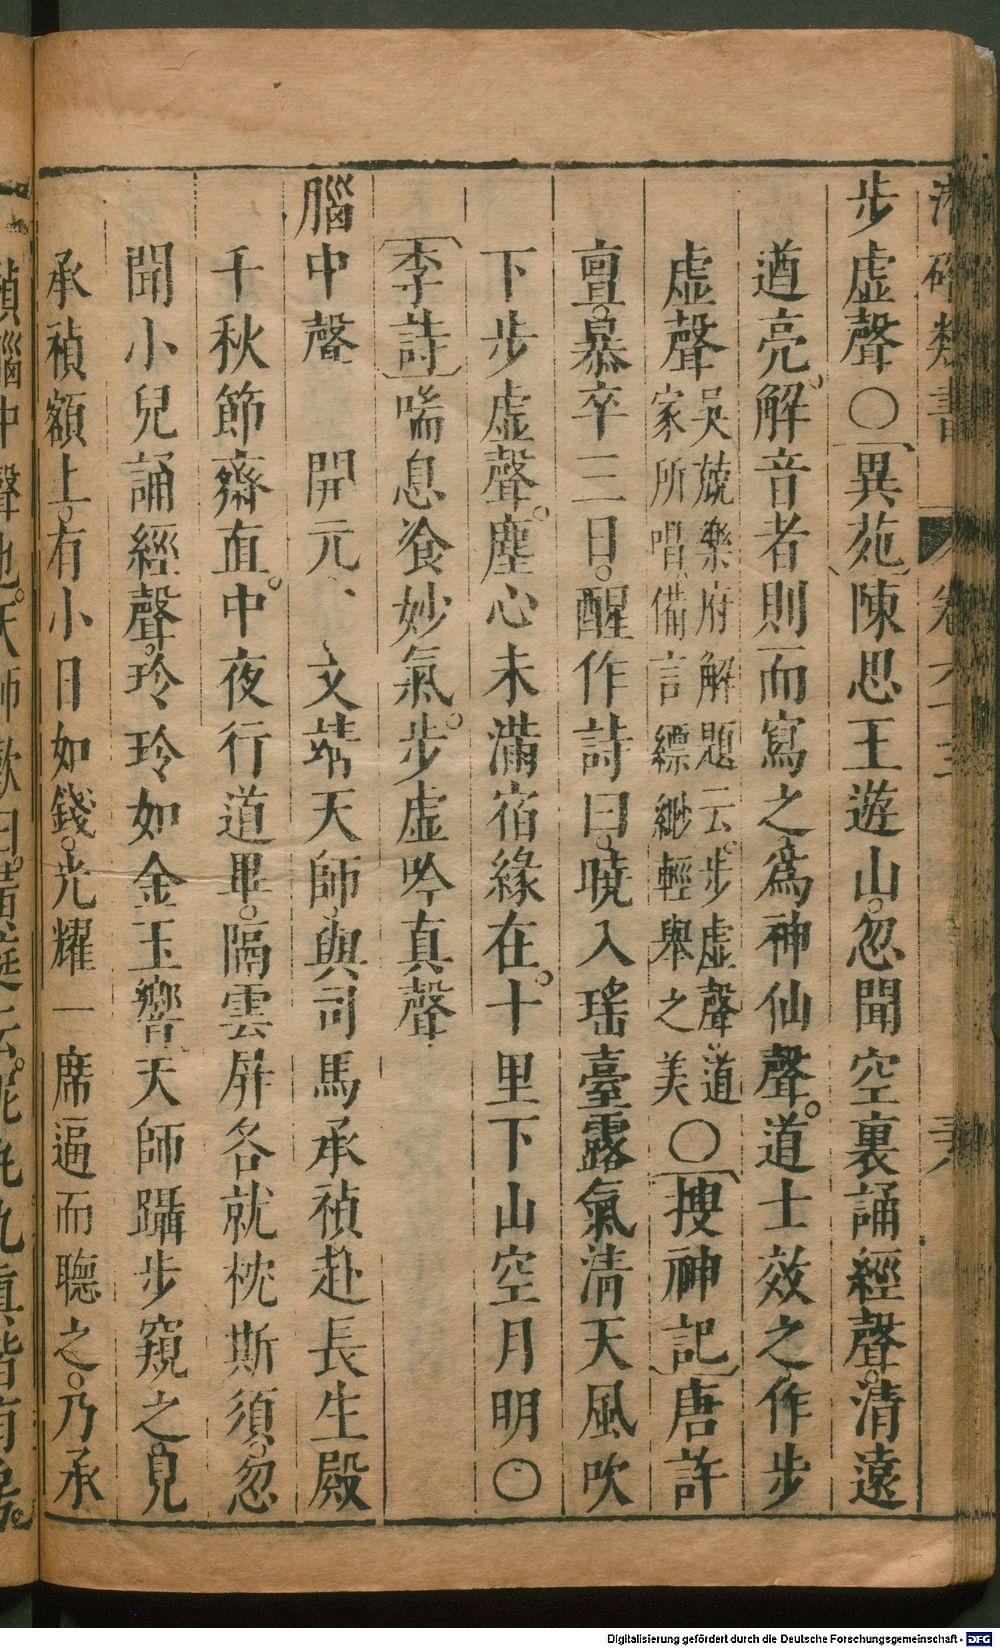 步虛聲〇〔異苑〕陳思王遊山。忽聞空裏誦經聲。清遠
遒亮。解音者則而寫之為神仙聲。道士效之作步
虛聲
吳兢樂府解題云。步虛聲道
家所唱、備言縹緲輕舉之美
〇〔搜神記〕唐許
亶。暴卒三日。醒作詩曰。曉入瑤臺露氣清天風吹
下步虛聲。塵心未滿宿緣在。十里下山空月明〇
〔李詩〕喘息飡妙氣。步虛吟真聲
腦中聲　開元、文靖天師與司馬承禎赴長生殿
千秋節齋直。中夜行道畢。隔雲屏各就枕斯須。忽
聞小兒誦經聲。玲玲如金玉響天師躡步窺之見
承禎額上。有小日如錢。光耀一席逼而聽之。乃承
禎腦中聲也。天師歎曰。黃庭云。泥丸九真皆有房。
類書
卷
Digitalisierung gefördert durch die Deutsche Forschungsgemeinschaft - DFG